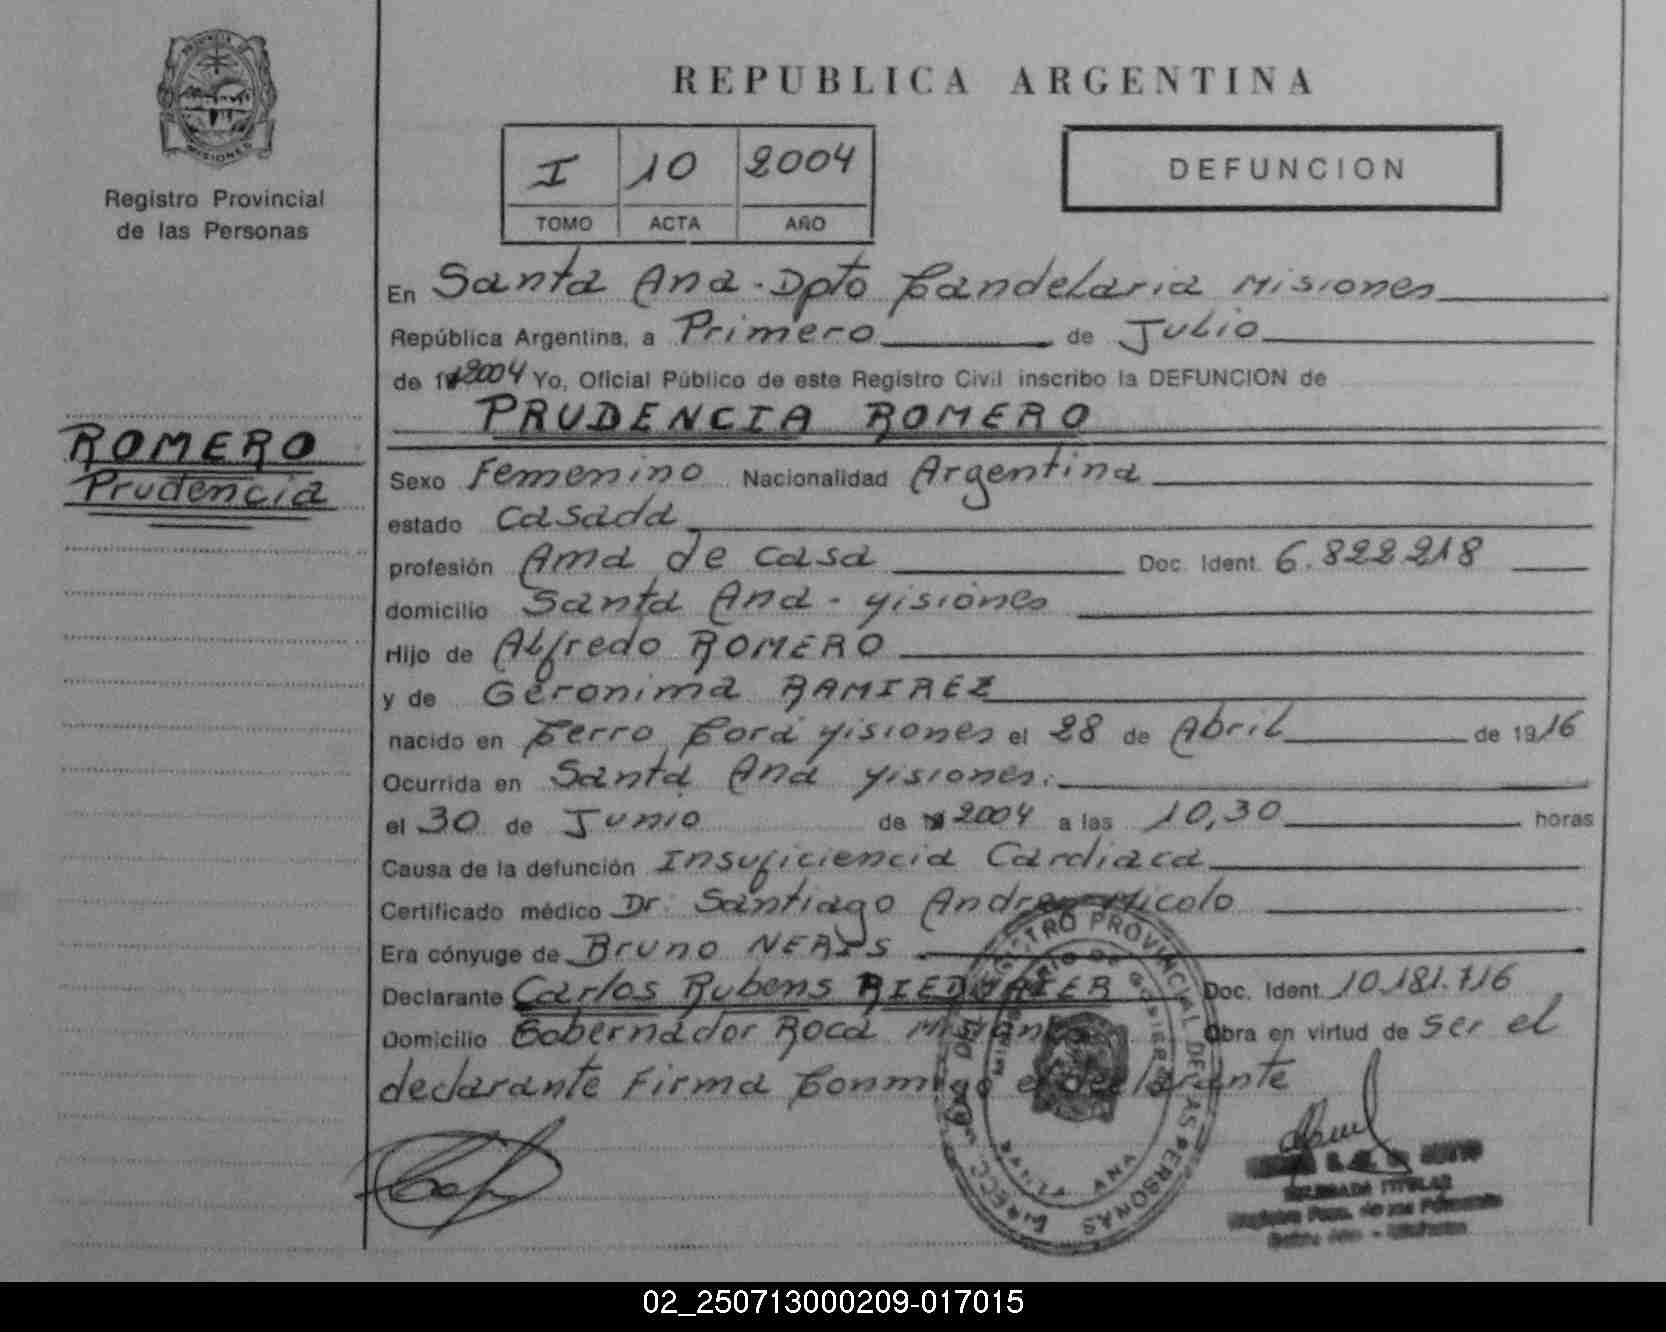 REPUBLICA ARGENTINA
PROVINCIA DE
MISIONES
Registro Provincial
de las Personas
I 10 2004
TOMO ACTA AÑO
DEFUNCION
En Santa Ana - Dpto Candelaria Misiones
República Argentina, a Primero de Julio
de 2004 Yo, Oficial Público de este Registro Civil inscribo la DEFUNCION de
PRUDENCIA ROMERO
ROMERO
Prudencia
Sexo Femenino Nacionalidad Argentina
estado Casada
profesión Ama de casa Doc. Ident. 6.822.218
domicilio Santa Ana - Misiones
Hijo de Alfredo ROMERO
y de Geronima RAMIREZ
nacido en Cerro Corá Misiones el 28 de Abril de 1916
Ocurrida en Santa Ana Misiones.
el 30 de Junio de 2004 a las 10,30 horas
Causa de la defunción Insuficiencia Cardiaca
Certificado médico Dr. Santiago Andres Micolo
Era cónyuge de Bruno NERIS
Declarante Carlos Rubens RIEDMAIER Doc. Ident. 10.181.716
Domicilio Gobernador Roca Misiones Obra en virtud de ser el
declarante Firma Conmigo el declarante
REGISTRO PROVINCIAL DE LAS PERSONAS
ANA
DELEGADA TITULAR
02_250713000209-017015